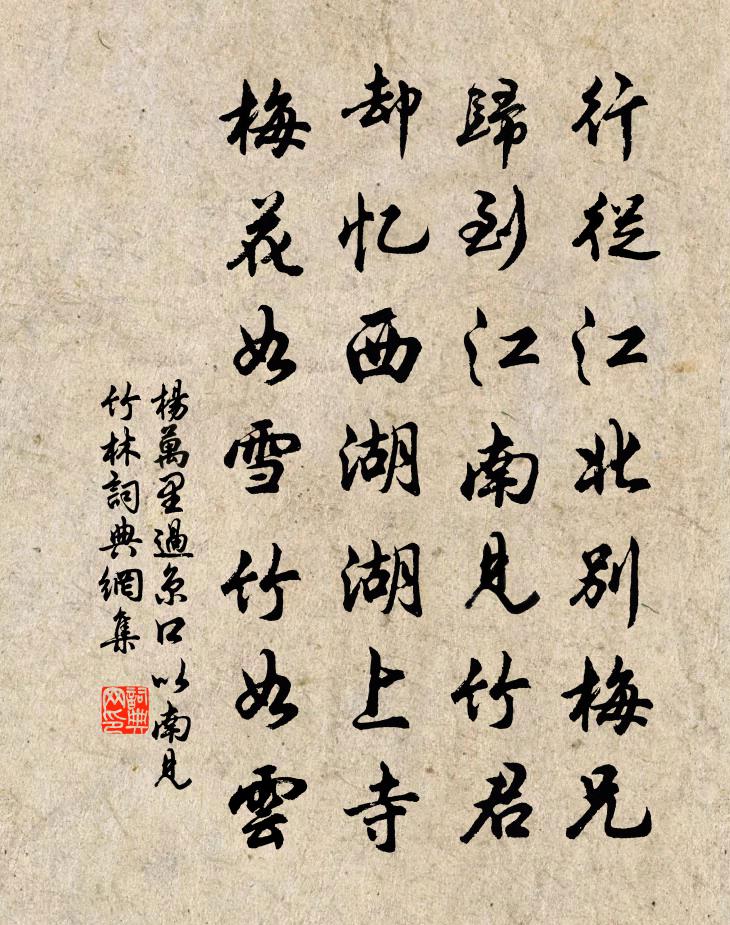 行從江北別梅兄
歸到江南見竹君
却忆西湖湖上寺
梅花如雪竹如雲
楊萬里過京口以南見
竹林詞典網集
詞典
网印